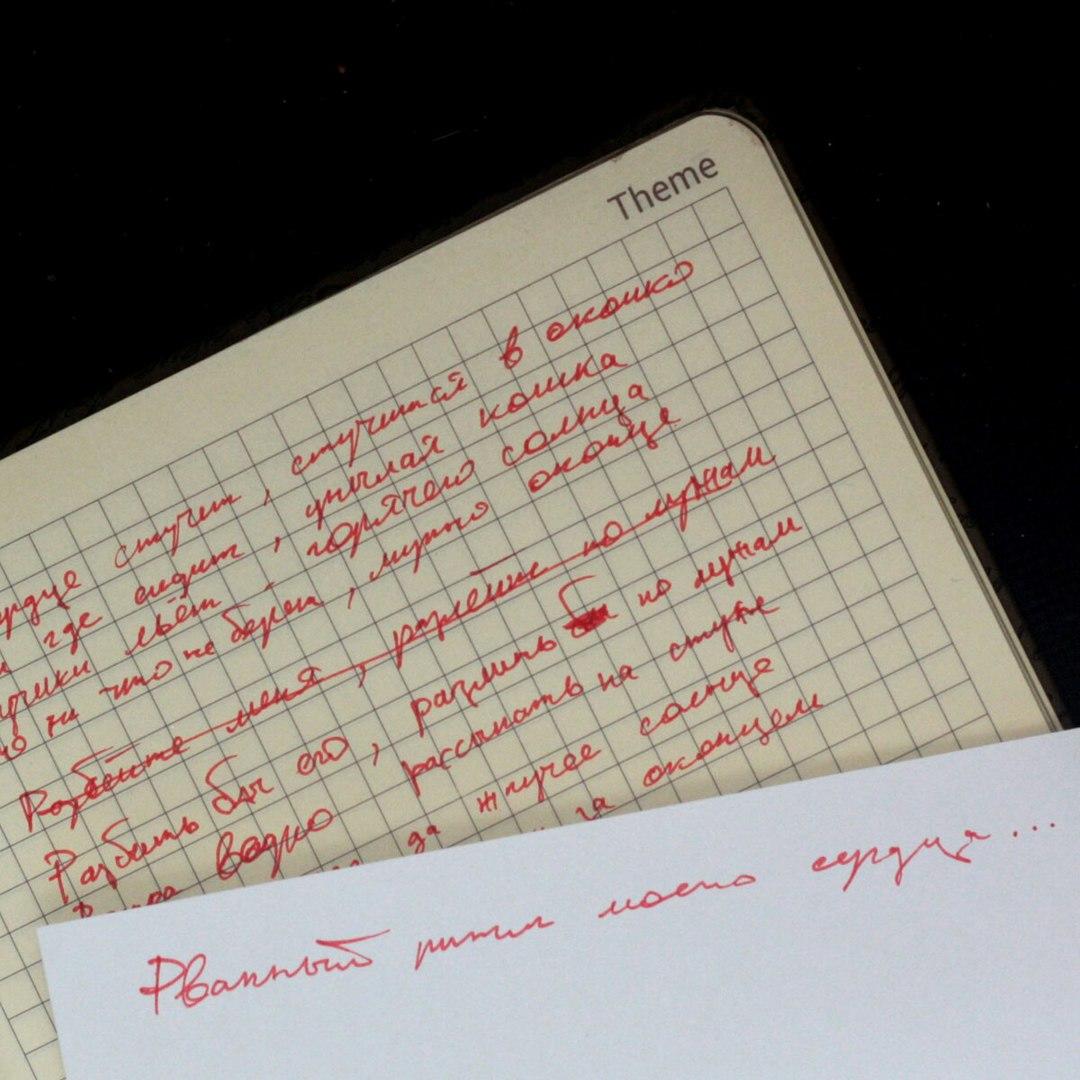 Theme
сердце стучит, стучится в окошко
где сидит, унылая кошка
льёт горячего солнца
ни что не берёт, мутно оконце
Разбейте меня, разлейте по лужам
Разбить бы его, разлить б по лужам
ведро рассыпать на стуже
да жгучее солнце
за оконцем
Рванный ритм моего сердца...